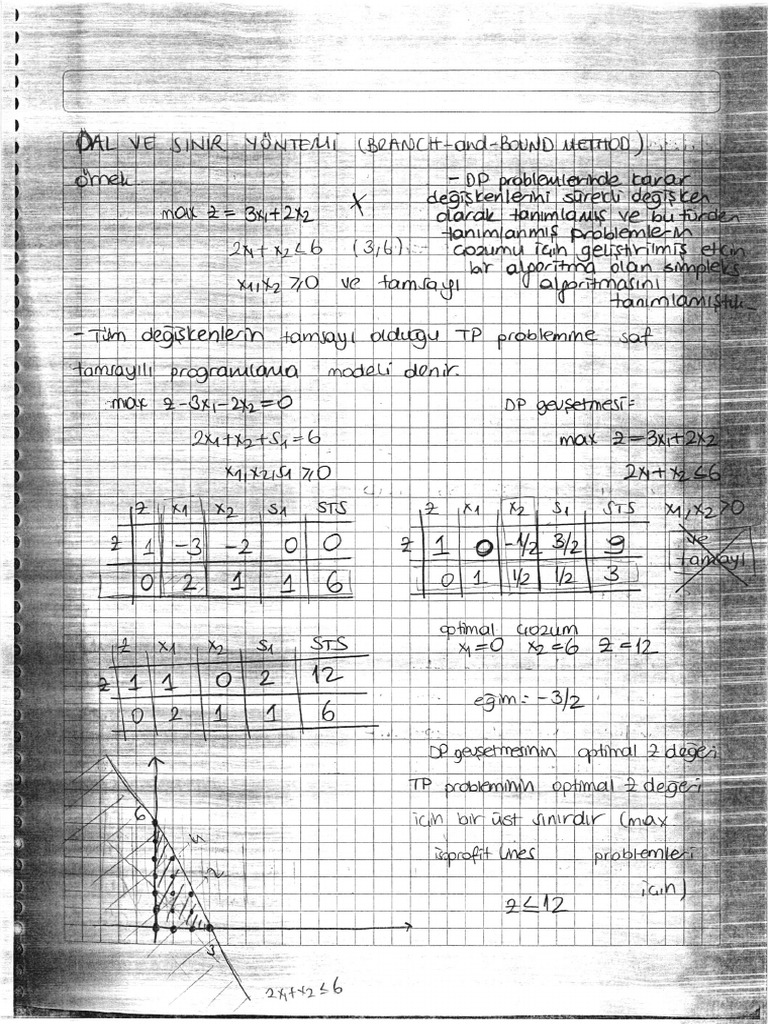 DAL VE SINIR YÖNTEMİ (BRANCH-and-BOUND METHOD)
örnek
max z = 3x₁+2x₂
2x₁+x₂≤6 (3,6)
x₁,x₂ ≥0 ve tamsayı
- DP problemlerinde karar
değişkenlerini sürekli değişken
olarak tanımlamış ve bu türden
tanımlanmış problemlerin
çözümü için geliştirilmiş etkin
bir algoritma olan simpleks
algoritmasını
tanımlamıştık.
- Tüm değişkenlerin tamsayı olduğu TP problemine saf
tamsayılı programlama modeli denir.
max z-3x₁-2x₂=0
2x₁+x₂+s₁=6
x₁,x₂,s₁ ≥0
DP gevşetmesi=
max z=3x₁+2x₂
2x₁+x₂≤6
x₁,x₂≥0
ve
tamsayı
z x₁ x₂ s₁ STS
z 1 -3 -2 0 0
0 2 1 1 6
z x₁ x₂ s₁ STS
z 1 0 -1/2 3/2 9
0 1 1/2 1/2 3
z x₁ x₂ s₁ STS
z 1 1 0 2 12
0 2 1 1 6
optimal çözüm
x₁=0 x₂=6 z=12
eğim= -3/2
DP gevşetmesinin optimal z değeri
TP probleminin optimal z değeri
için bir üst sınırdır (max
problemleri
için)
isoprofit lines
z≤12
6
3
2x₁+x₂≤6
1